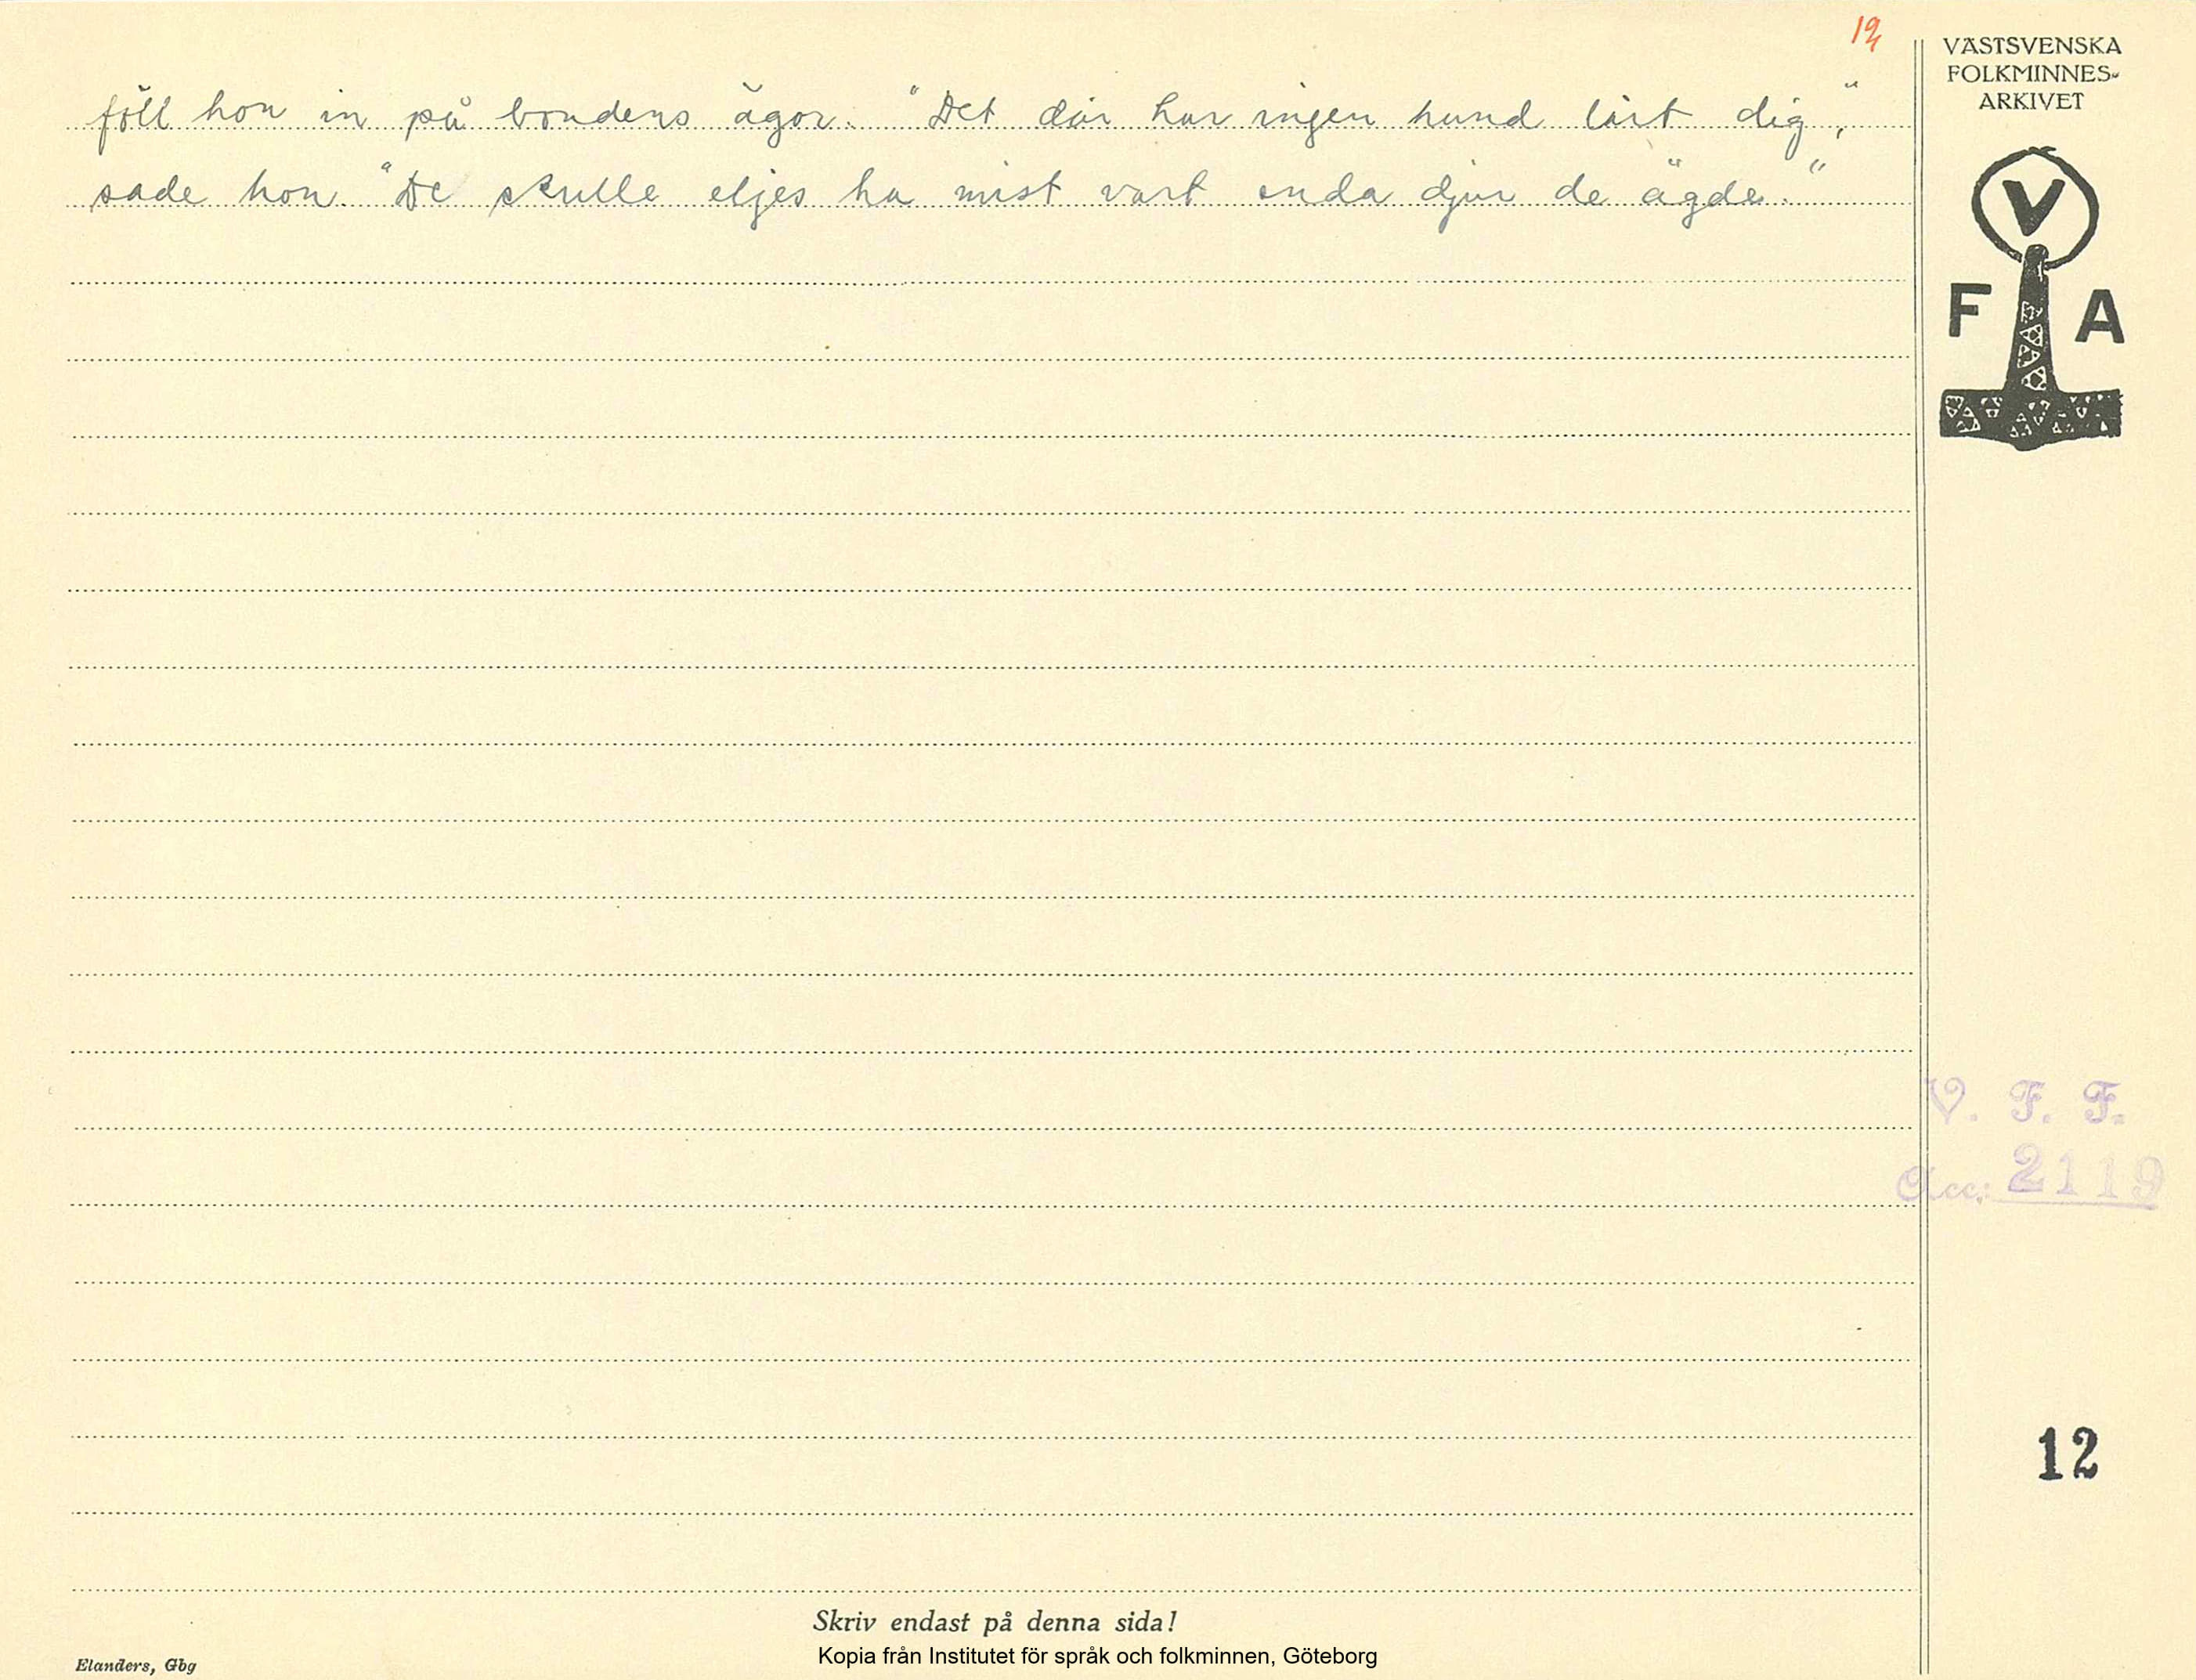 12
föll hon in på bondens ägor. "Det där har ingen hund lärt dig,"
sade hon. "De skulle eljes ha mist vart enda djur de ägde."
VÄSTSVENSKA
FOLKMINNES-
ARKIVET
V
F A
V. F. F.
Acc: 2119
12
Skriv endast på denna sida!
Kopia från Institutet för språk och folkminnen, Göteborg
Elanders, Gbg